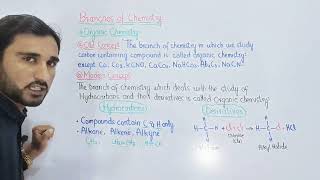 Branches of Chemistry
Organic Chemistry
Old Concept: The branch of chemistry in which we study
carbon containing compound is called organic chemistry
except Co, Co₂, KCNO, CaCo₃, NaHCo₃, Al₄C₃, NaCN
Modern Concept
The branch of chemistry which deals with the study of
Hydrocarbons and their derivatives is called Organic chemistry
Hydrocarbons
Derivatives
• Compounds contain C & H only
Alkane, Alkene, Alkyne
CH₄
H
H
H-C-H + Cl-Cl → H-C-Cl + HCl
H
Chlorine
H
Alkyl Halide